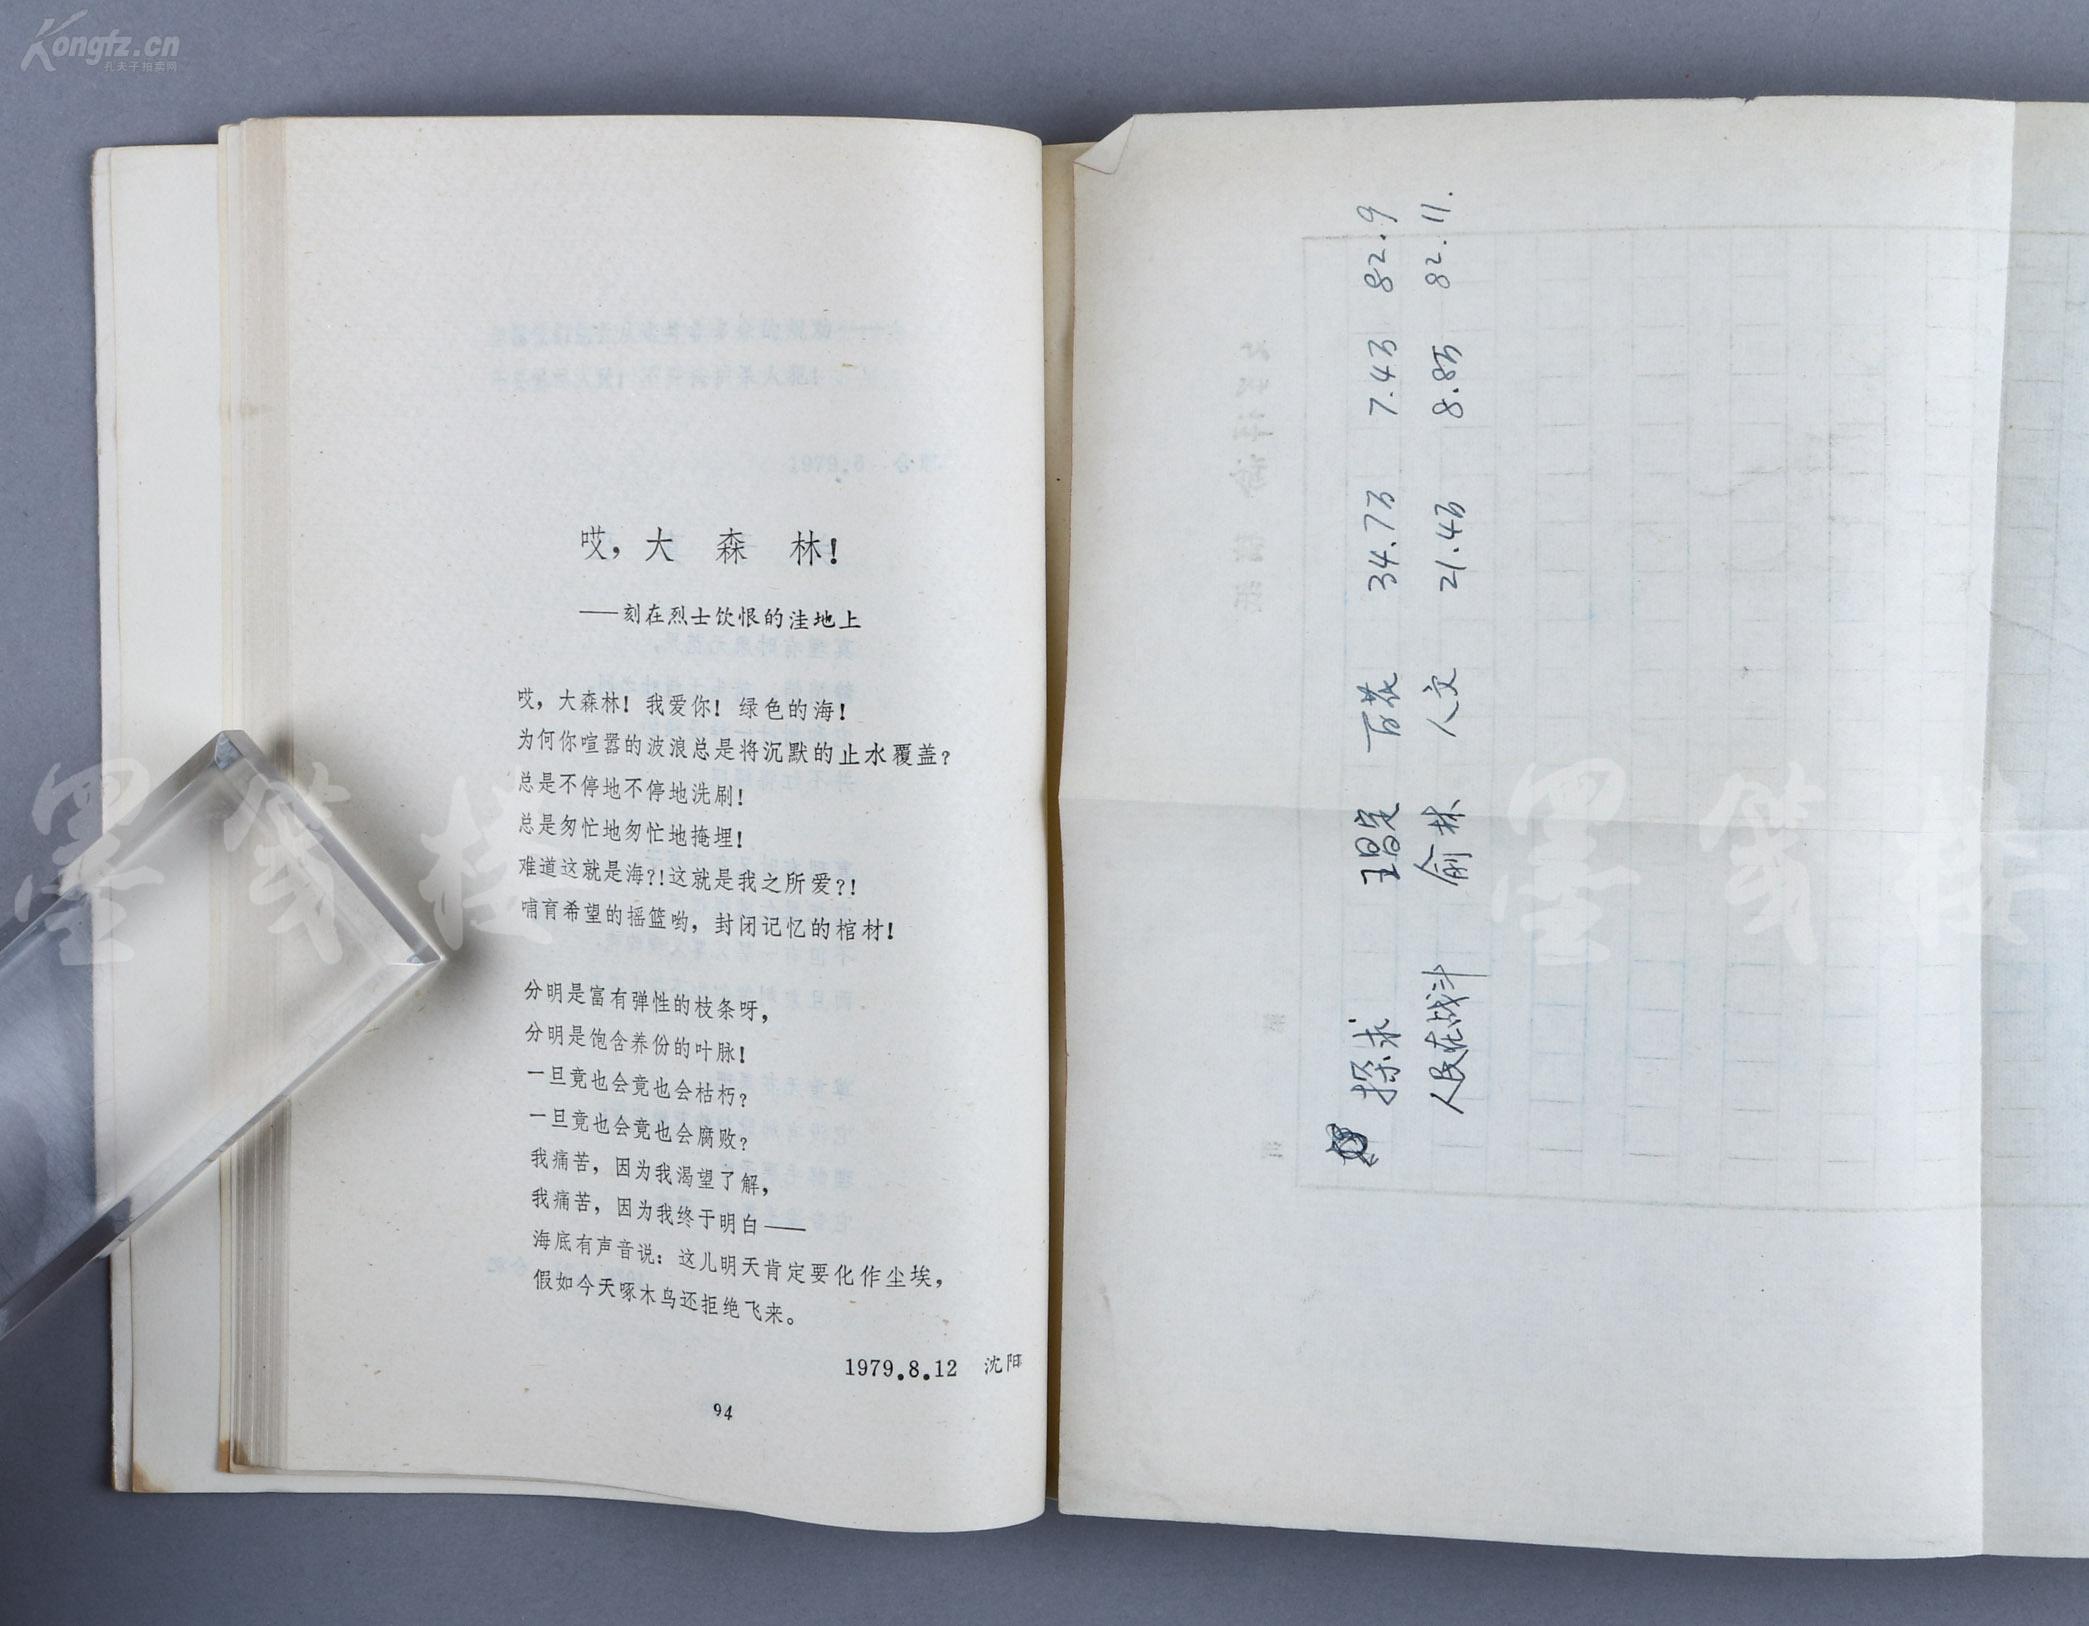 Kongfz.cn
孔夫子拍卖网
哎，大森林！
——刻在烈士饮恨的洼地上
哎，大森林！我爱你！绿色的海！
为何你喧嚣的波浪总是将沉默的止水覆盖？
总是不停地不停地洗刷！
总是匆忙地匆忙地掩埋！
难道这就是海？！这就是我之所爱？！
哺育希望的摇篮哟，封闭记忆的棺材！
分明是富有弹性的枝条呀，
分明是饱含养份的叶脉！
一旦竟也会竟也会枯朽？
一旦竟也会竟也会腐败？
我痛苦，因为我渴望了解，
我痛苦，因为我终于明白——
海底有声音说：这儿明天肯定要化作尘埃，
假如今天啄木鸟还拒绝飞来。
1979.8.12 沈阳
94
探求 王昌定 百花 34.7万 7.4万 82.9
人民在战斗 俞林 人文 21.4万 8.8万 82.11.
墨笺楼
墨笺楼